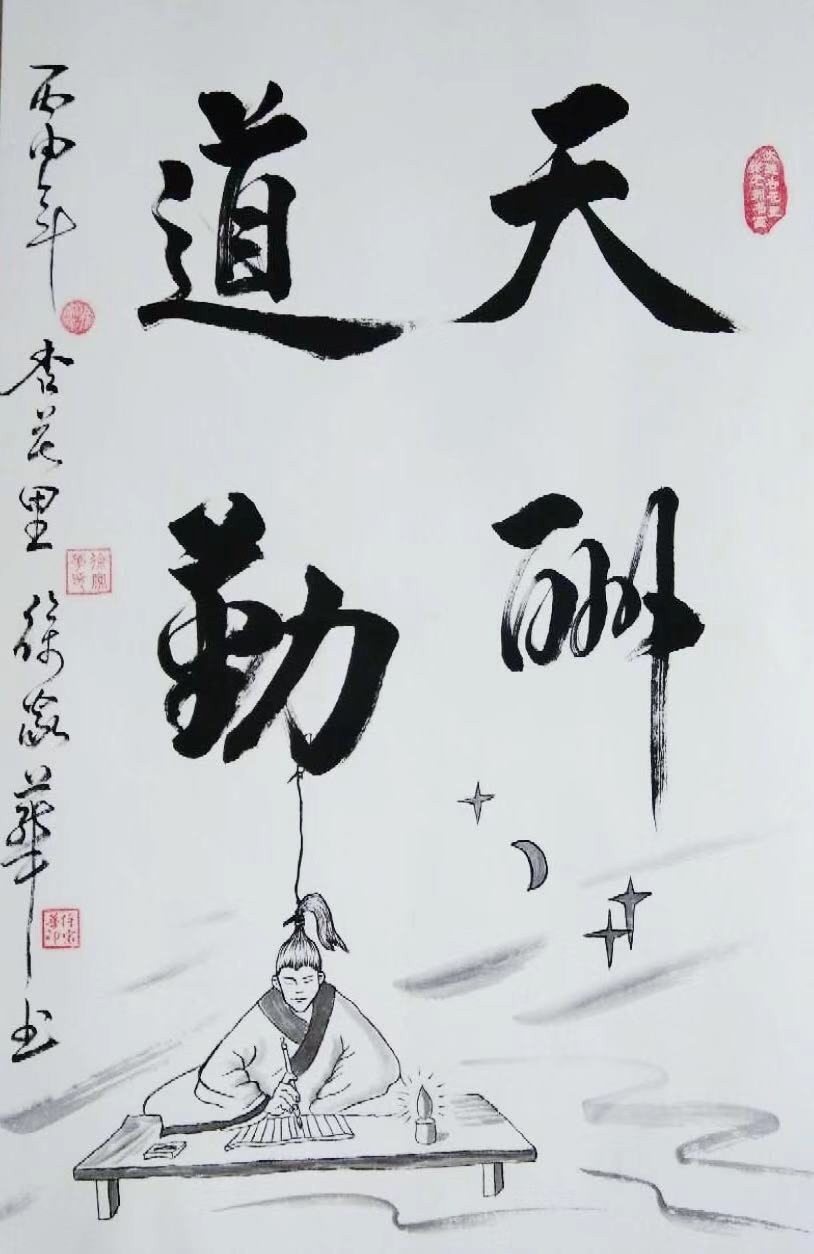 天道
酬勤
丙申年 杏花里 徐家華书